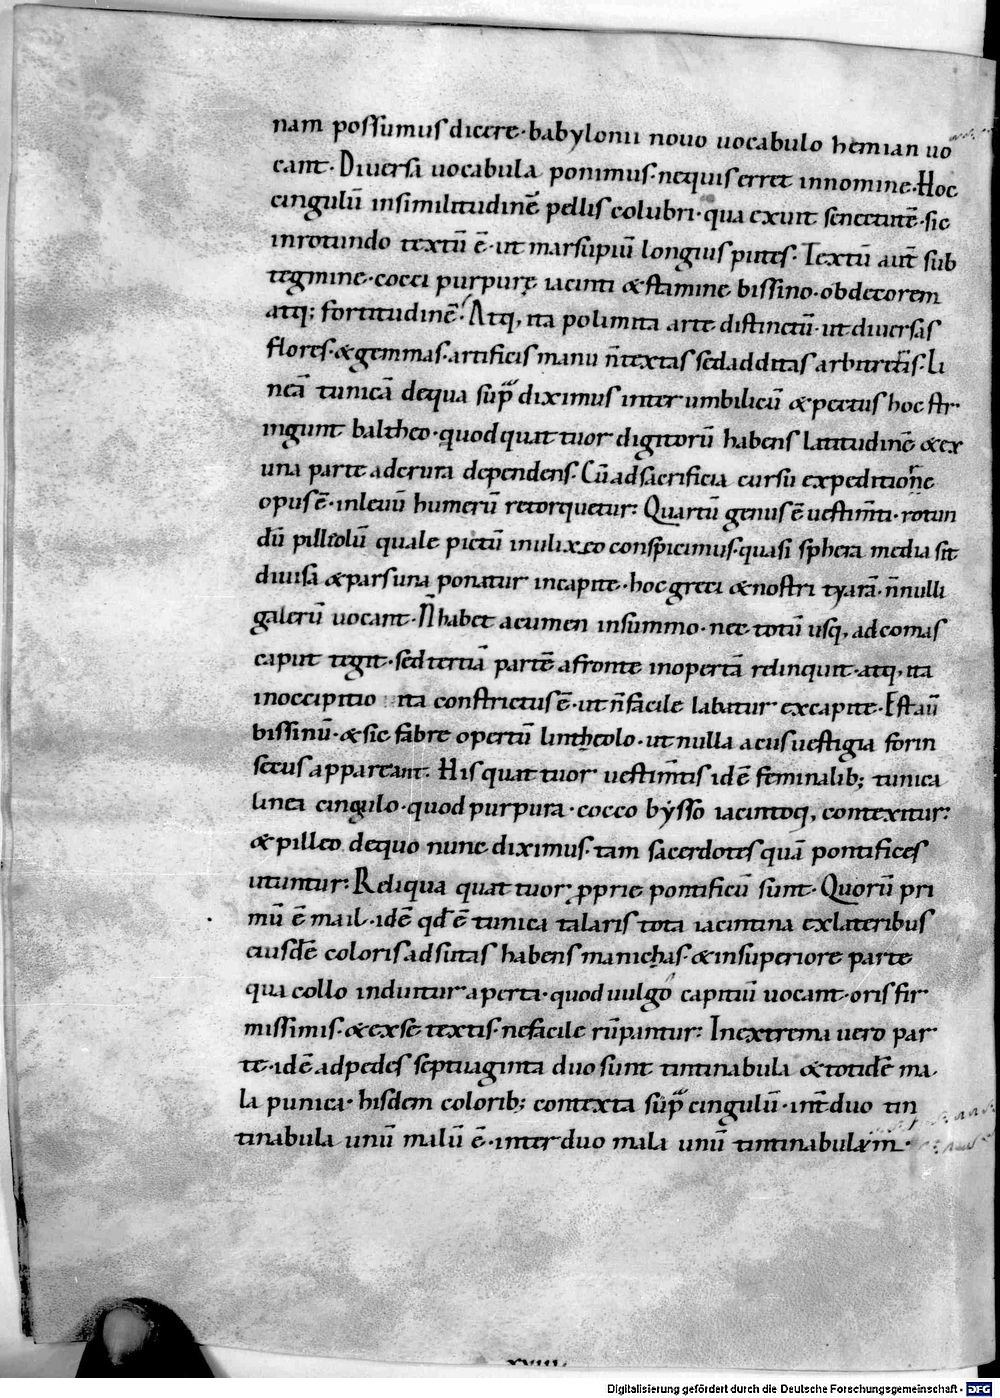 nam possumus dicere·babylonii nouo uocabulo hemian uo
cant·Diuersa uocabula ponimus·nequis erret innomine·Hoc
cingulū insimilitudinē pellis colubri·qua exuit senectutē·sic
inrotundo textū ē·ut marsupiū longius putes·Textū aut̄ sub
tegmine·cocci purpurę iacinti &stamine bissino·obdecorem
atq; fortitudinē·Atq, ita polimita arte distinctū·ut diuersas
flores·&gemmas·artificis manu n̄ textas sed additas arbitreris·Li
neā tunicā dequa sup̄ diximus inter umbilicū &pectus hoc str
ingunt baltheo·quod quattuor digitorū habens latitudinē &ex
una parte adcrura dependens·Cū adsacrificia cursu expeditione
opus ē·inleuū humerū retorquetur: Quartū genus ē uestim̄ti·rotun
dū pilleolū quale pictū inulixeo conspicimus·quasi sphera media sit
diuisa &pars una ponatur incapite·hoc greci &nostri tyarā·n̄nulli
galerū uocant·N̄ habet acumen insummo·nec totū usq, ad comas
caput tegit·sed tertiā partē afronte inopertā relinquit·atq, ita
inoccipitio ita constrictus ē·ut n̄ facile labatur excapite·Est aū
bissinū·&sic fabre opertū lintheolo·ut nulla acus uestigia forin
secus appareant. His quattuor uestim̄tis id ē feminalib; tunica
linea cingulo·quod purpura·cocco bysso iacintoq, contexitur:
&pilleo dequo nunc diximus·tam sacerdotes quā pontifices
utuntur: Reliqua quattuor p̱prie pontificū sunt·Quorū pri
mū ē mail·id ē qd̄ ē tunica talaris tota iacintina exlateribus
eiusdē coloris adsutas habens manichas·&insuperiore parte
qua collo induitur aperta·quod uulgo capitiū uocant·oris fir
missimis·&exse textis·nefacile rūpantur: Inextrema uero par
te·id ē adpedes septuaginta duo sunt tintinabula &totidē ma
la punica·hisdem colorib; contexta sup̄ cingulū·int̄ duo tin
tinabula unū malū ē·inter duo mala unū tintinabulum·
xviiii
Digitalisierung gefördert durch die Deutsche Forschungsgemeinschaft - DFG